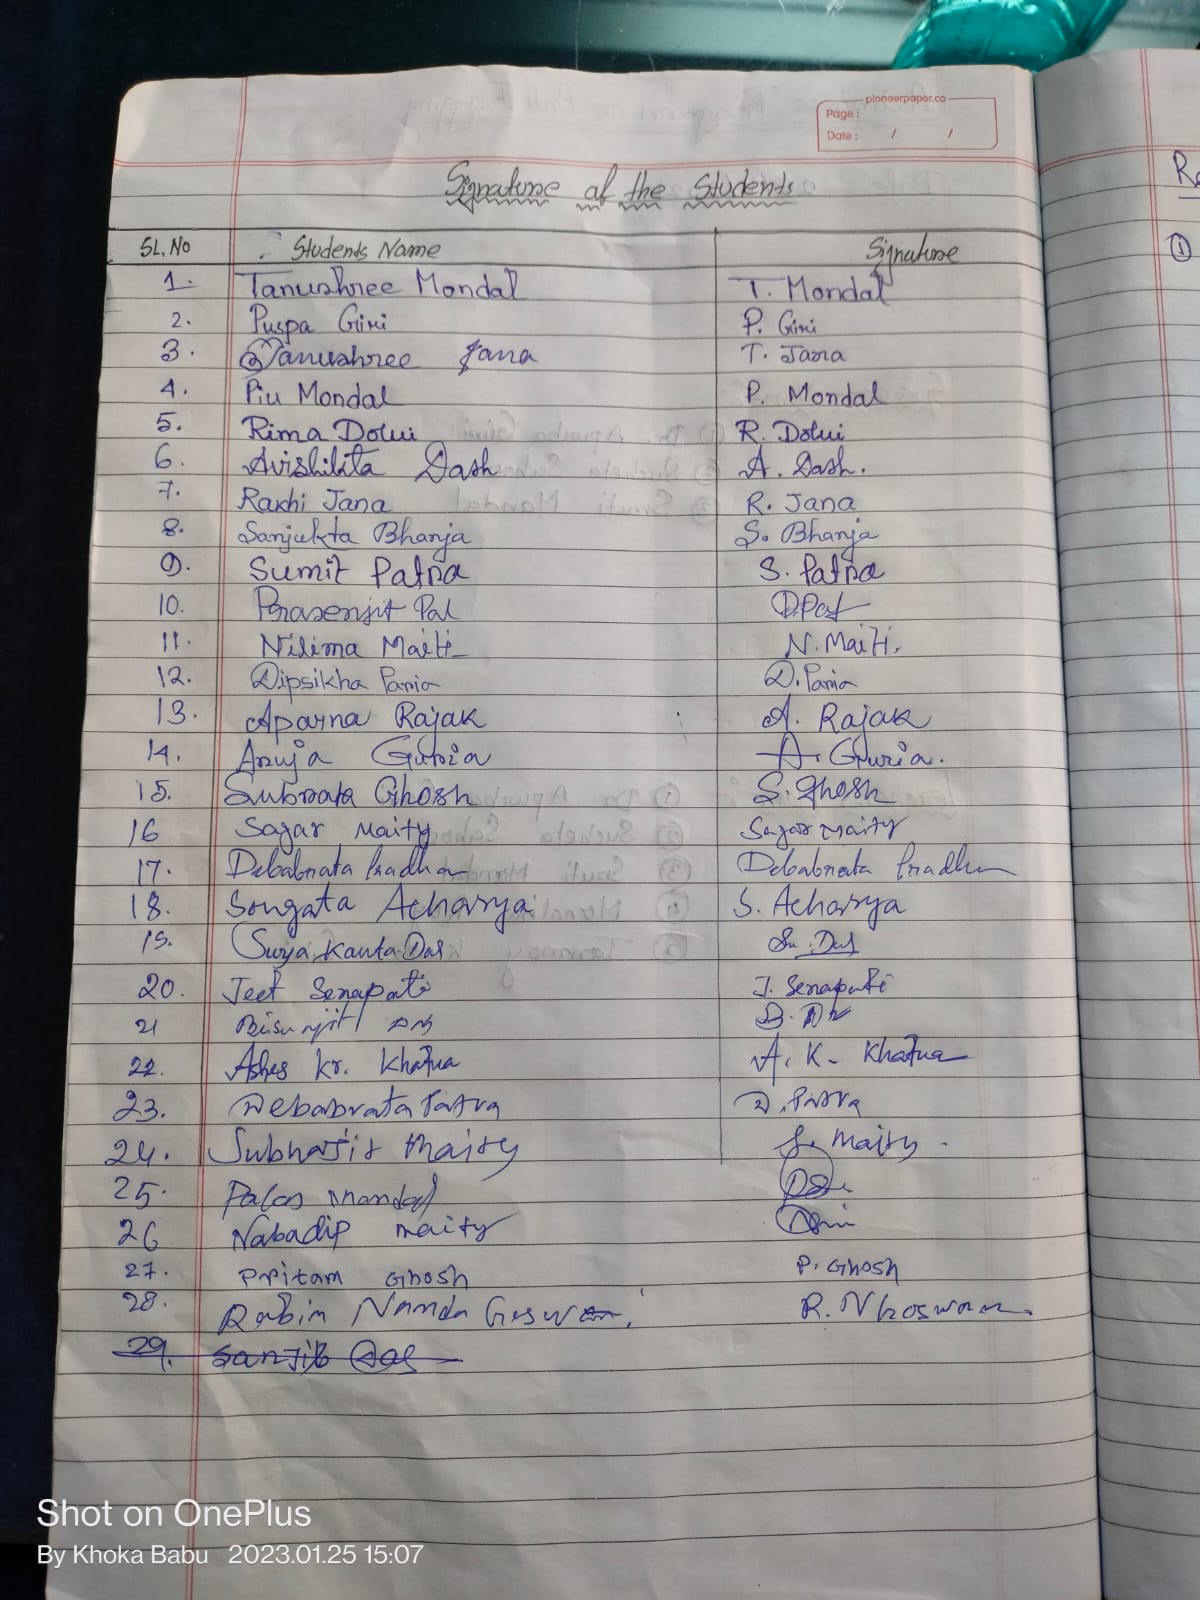 pioneerpaper.co
Page :
Date : / /
Signature of the Students
SL. No Students Name Signature
1. Tanushree Mondal T. Mondal
2. Puspa Giri P. Giri
3. Tanushree Jana T. Jana
4. Piu Mondal P. Mondal
5. Rima Dolui R. Dolui
6. Avishikta Dash A. Dash.
7. Rakhi Jana R. Jana
8. Sanjukta Bhanja S. Bhanja
9. Sumit Patra S. Patra
10. Prasenjit Pal P.Pal
11. Nilima Maiti N. Maiti.
12. Dipsikha Paria D. Paria
13. Aparna Rajak A. Rajak
14. Anuja Guria A. Guria.
15. Subrata Ghosh S. Ghosh
16 Sagar Maity Sagar maity
17. Debabrata Pradhan Debabrata Pradhan
18. Sougata Acharya S. Acharya
19. Surya Kanta Das Das
20. Jeet Senapati J. Senapati
21
22. Ashes kr. Khatua A. K. Khatua
23. Debabrata Patra D. Patra
24. Subhajit Maity S. Maity.
25. Palas Mandal
26 Nabadip maity
27. Pritam Ghosh P. Ghosh
28. Rabin Nanda Goswami R.
29. Sanjib Das
Re
①
Shot on OnePlus
By Khoka Babu 2023.01.25 15:07